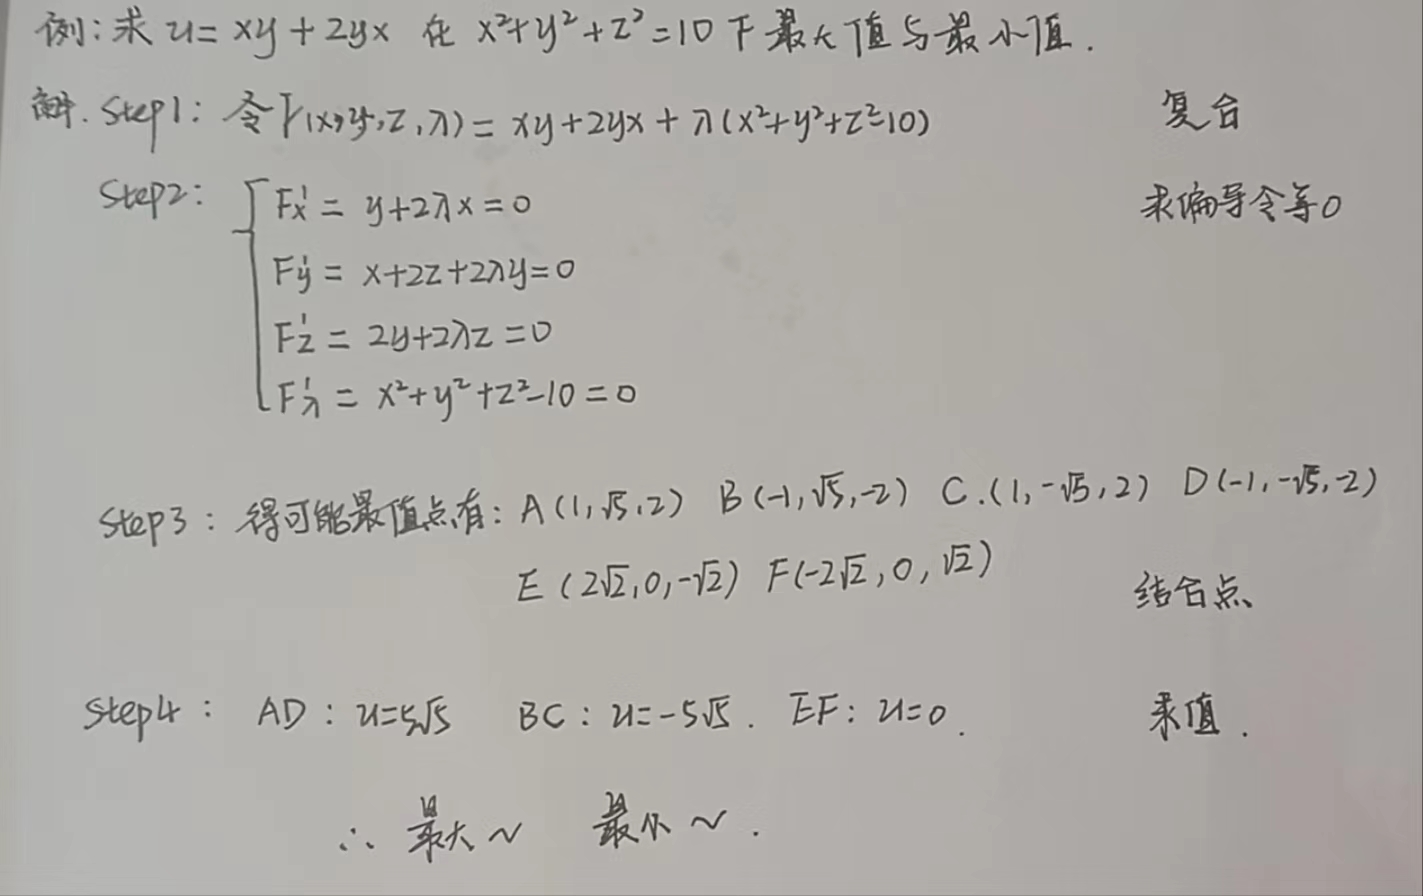 例:求 u= xy+2yx 在 x²+y²+z²=10 下最大值与最小值.
解. Step1: 令F(x,y,z,λ)= xy+2yx+λ(x²+y²+z²-10) 复合
Step2: F'x = y+2λx=0 求偏导令等0
F'y = x+2z+2λy=0
F'z = 2y+2λz=0
F'λ = x²+y²+z²-10=0
Step3: 得可能最值点有: A(1,√5,2) B(-1,√5,-2) C.(1,-√5,2) D(-1,-√5,-2)
E(2√2,0,-√2) F(-2√2,0,√2) 结合点
Step4: AD: u=5√5 BC: u=-5√5. EF: u=0. 求值.
∴ 最大~ 最小~.